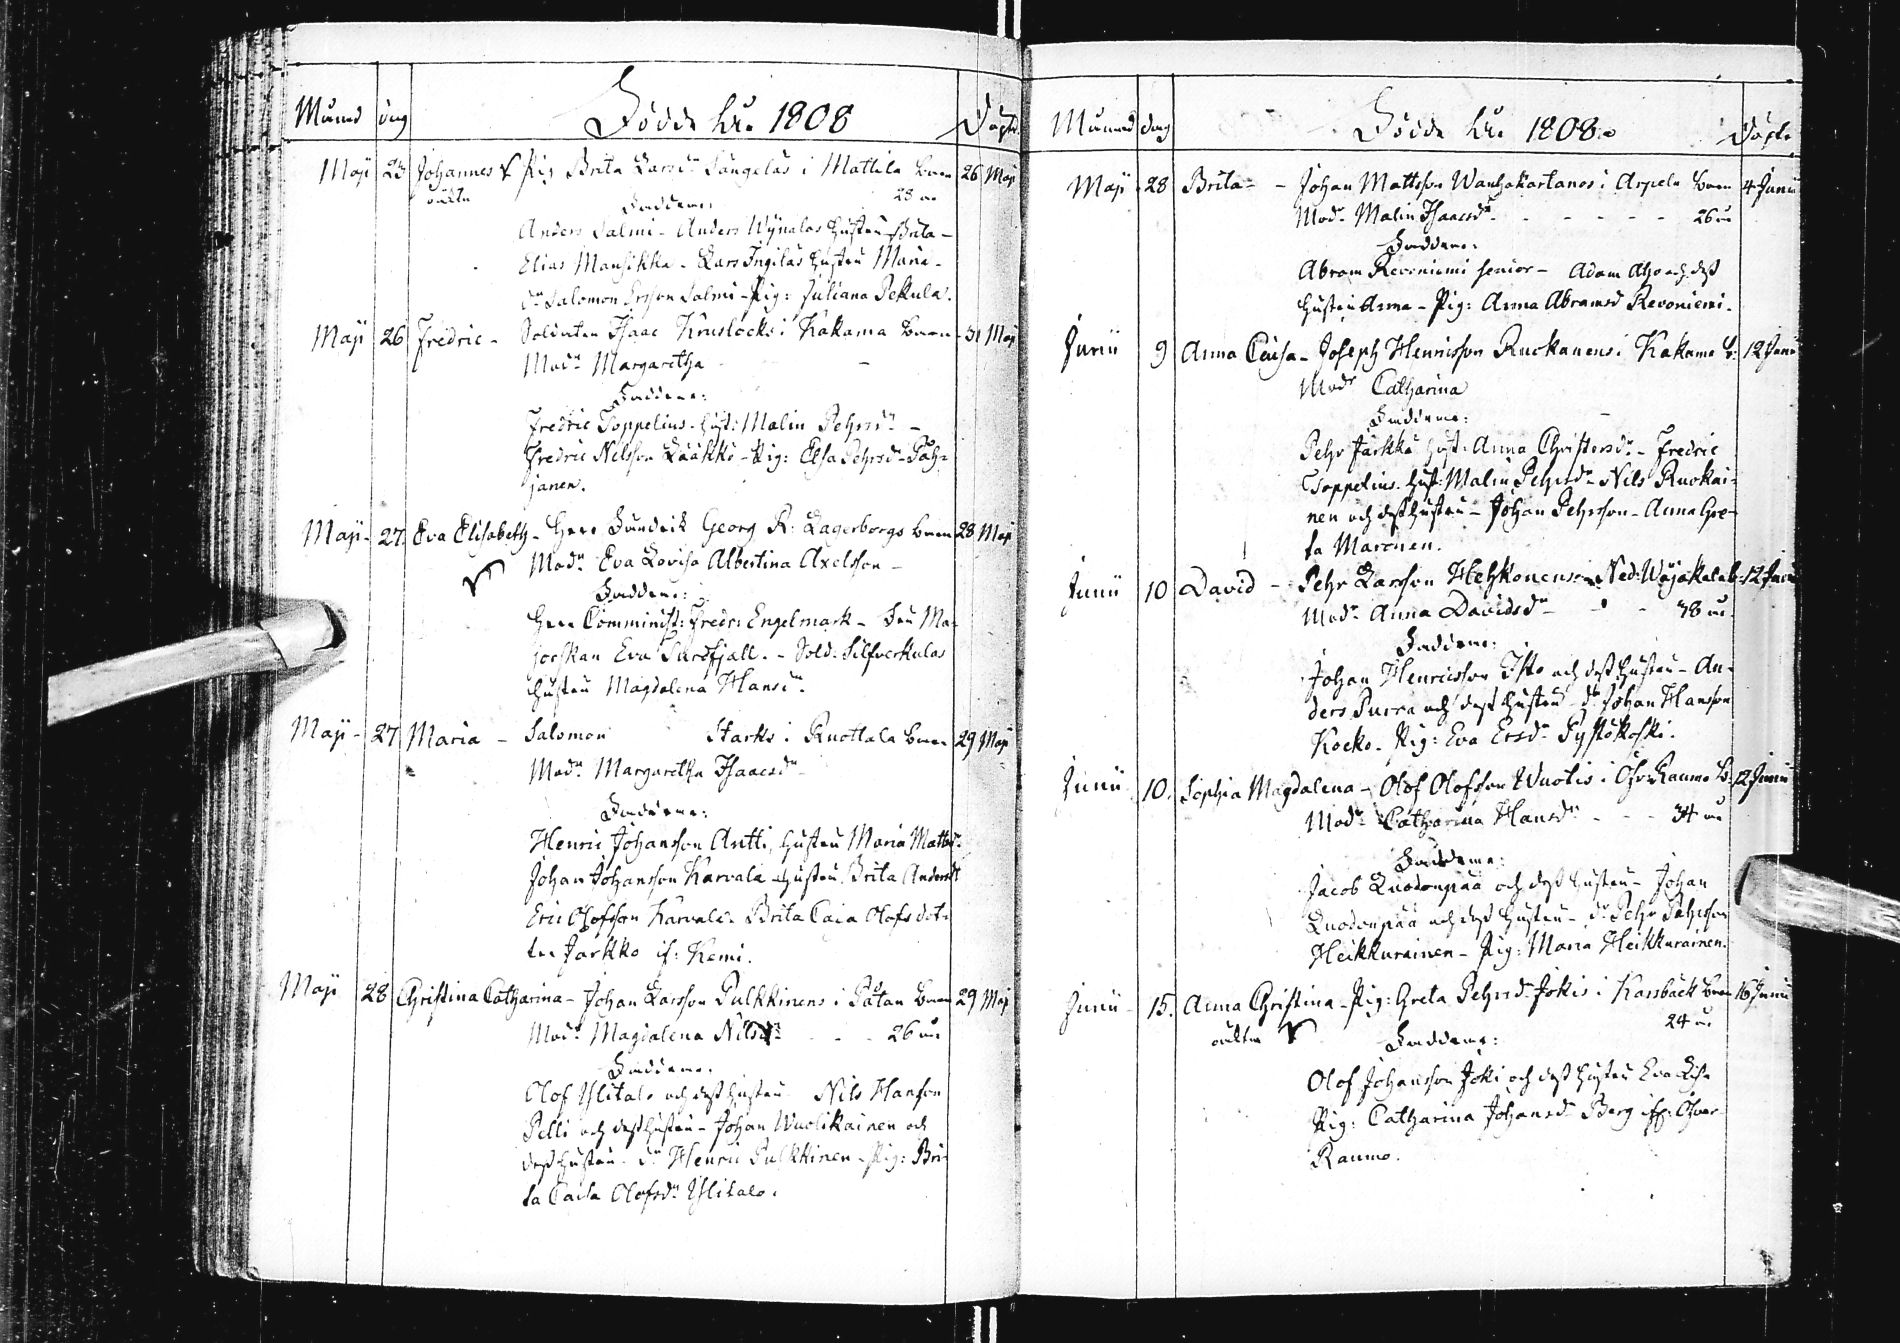 Månad dag Födde år 1808 Döpte
Maji 23 Johannes Pig. Brita Larsdr Sangelas i Mattila barn 26 Maji
oäkta 28 år
Faddrar:
Anders Salmi - Anders Wynalas hustru Brita -
Elias Mansikka - Lars Ingilas hustru Maria -
dr Salomon Ersson Salmi - Pig: Juliana Pekula.
Maji 26 Fredric - Soldaten Isaac Kruslocks i Kakama barn - 31 Maji
Modr Margaretha -
Faddrar:
Fredric Toppelius hust: Malin Pehrsdr -
Fredric Nilsson Lääkkö - Pig: Elsa Pehrsd. Päh-
janen.
Maji - 27 Eva Elisabeth - Herr Georg R: Lagerborgs barn 28 Maji
Modr Eva Lovisa Albertina Axelsson -
Faddrar:
Herr Comminist: Fredr: Engelmark - Ma-
jorskan Eva - Sold: Silfverkulas
hustru Magdalena Hansdr.
Maji - 27 Maria - Salomon Starks i Ruottala barn 29 Maji
Modr Margaretha Isaacsdr
Faddrar:
Henric Johansson Antti, hustru Maria Mattsdr
Johan Johansson Karvala hustru Brita Andersdr
Eric Olofsson Karvala. Brita Caisa Olofs dot-
ter Jarkko if: Kemi.
Maji 28 Christina Catharina - Johan Larsson Pulkkinens i Påtan barn 29 Maji
Modr Magdalena Nilsdr - - - 26 år
Faddrar:
Olof Ylitalo och dess hustru Nils Hansson
Pelli och dess hustru - Johan Wuolikainen och
dess hustru - dr Henric Pulkkinen - Pig: Bri-
ta Caisa Olofsdr Ylitalo.
Månad dag Födde år 1808 Döpte
Maji 28 Brita - - Johan Mattsson Wanhakartanos i Arpela barn 4 Junii
Modr Malin Isaacsdr - - - - - 26 år
Faddrar:
Abram Revoniemi senior - Adam Aho och dess
hustru Anna - Pig: Anna Abramsd Revoniemi.
Junii 9 Anna Caisa - Joseph Henricsson Ruokanens i Kakama b: 12 Junii
Modr Catharina
Faddrar:
Pehr Jarkko hust: Anna Christersdr - Fredric
Toppelius hust: Malin Pehrsdr - Nils Ruokai-
nen och dess hustru - Johan Pehrsson - Anna Gre-
ta Maronen.
Junii 10 David - Pehr Larsson Ned: Wojakala b: 12 Junii
Modr Anna Davidsdr - - - 38 år
Faddrar:
Johan Henricsson Isto och dess hustru - An-
ders Purra och dess hustru - dr Johan Hansson
Kocko - Pig: Eva Ersdr Pystökoski.
Junii 10. Sophia Magdalena - Olof Olofsson Wuotis i Öfv: Raumo b: 12 Junii
Modr Catharina Hansdr - - - 34 år
Faddrar:
Jacob Luodonpää och dess hustru - Johan
Luodonpää och dess hustru - dr Pehr Pehrsson
Heikkurainen - Pig: Maria Heikkurainen.
Junii - 15. Anna Christina - Pig: Greta Pehrsdr Jokis i Karsbäck barn 16 Junii
oäkta 24 år
Faddrar:
Olof Johansson Joki och dess hustru Eva Lisa
Pig: Catharina Johansdr Berg if: Öfver
Raumo.